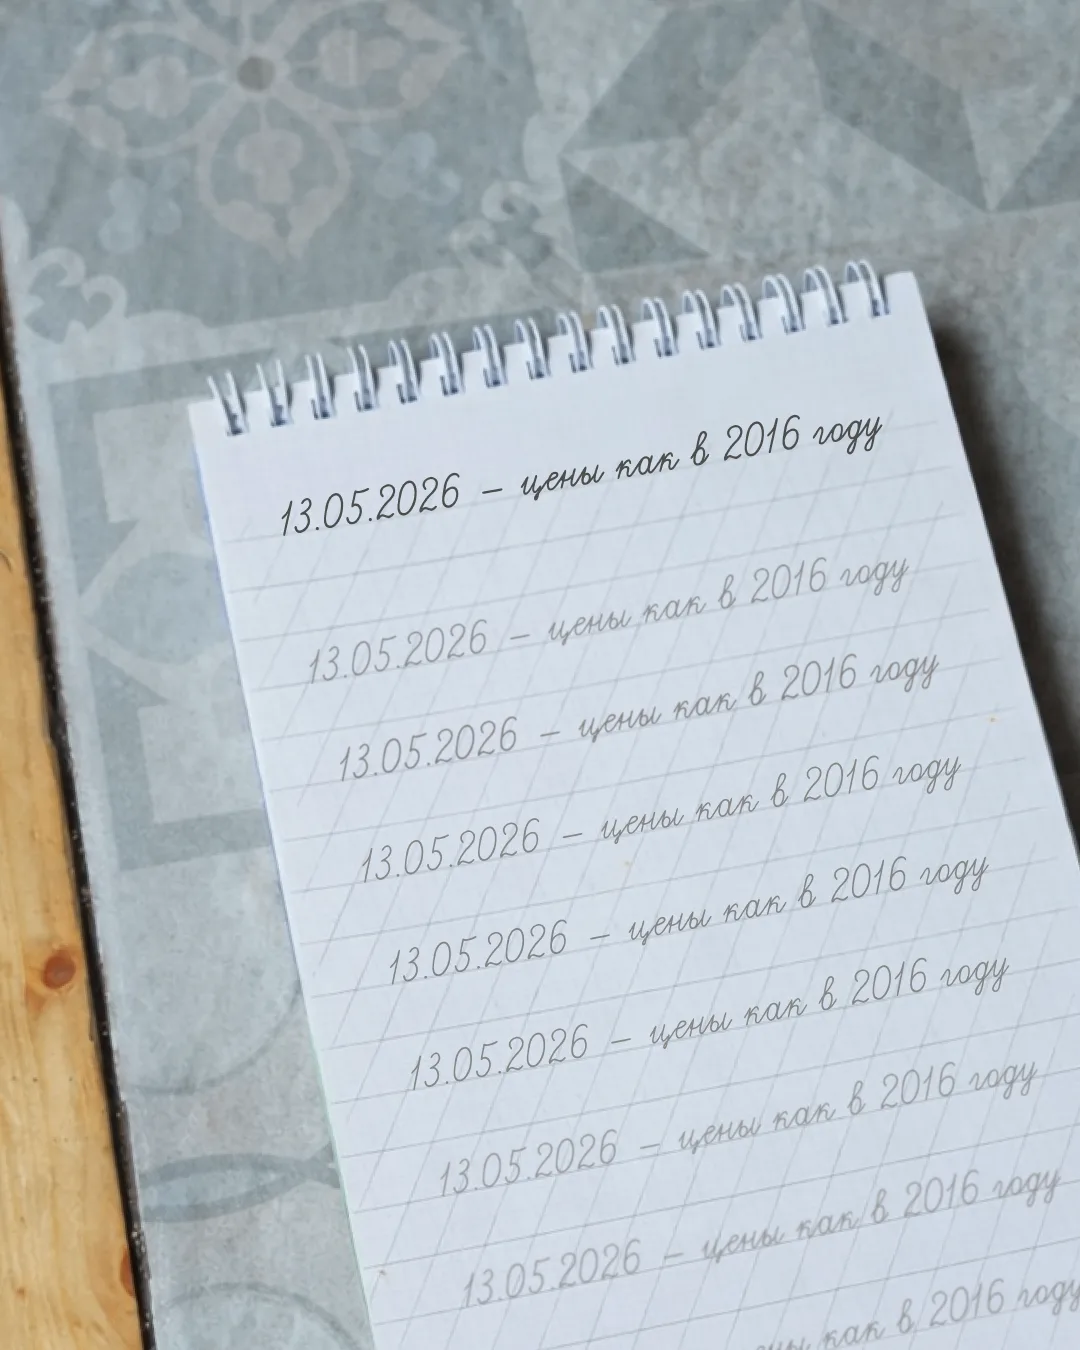 13.05.2026 – цены как в 2016 году
13.05.2026 – цены как в 2016 году
13.05.2026 – цены как в 2016 году
13.05.2026 – цены как в 2016 году
13.05.2026 – цены как в 2016 году
13.05.2026 – цены как в 2016 году
13.05.2026 – цены как в 2016 году
13.05.2026 – цены как в 2016 году
как в 2016 году